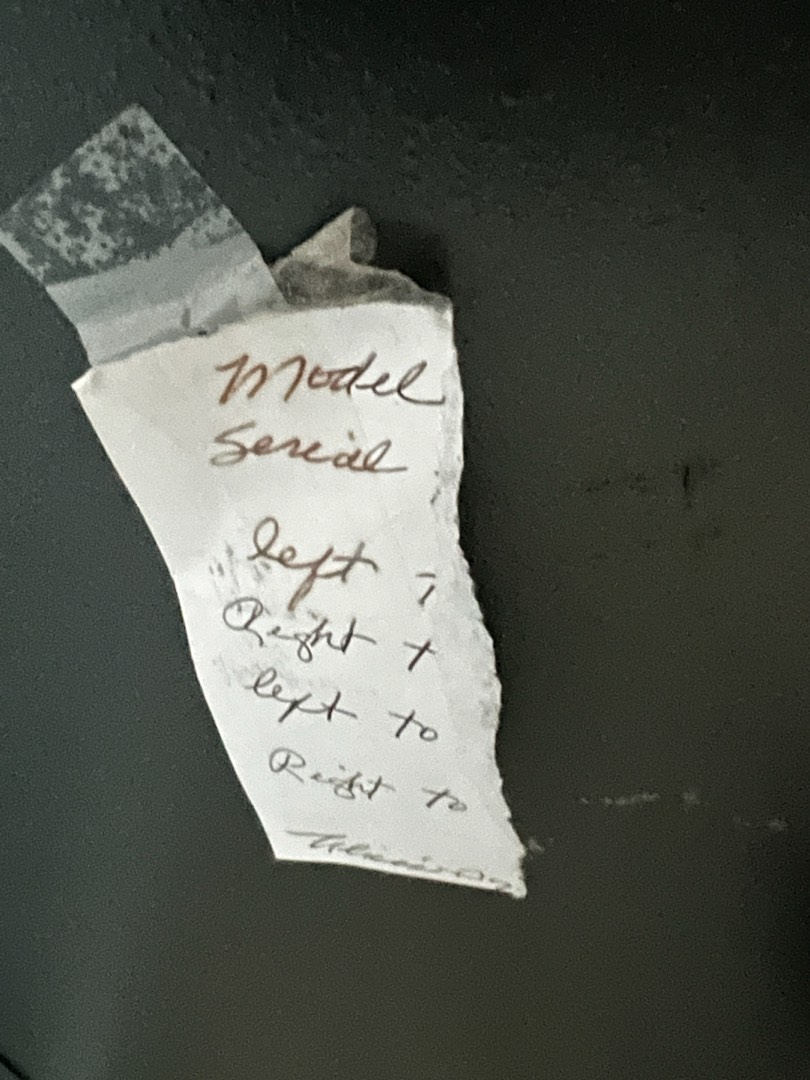 Model
Serial
left T
Right t
left to
Right to